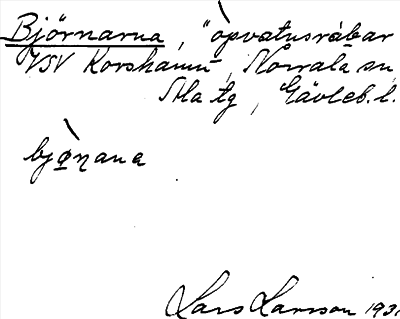 Björnarna, "òpvatusråbar
VSV Korshamn, Norrala sn,
Ala tg, Gävleb. l.
bjø̀ṇaṇa
Lars Larsson 193